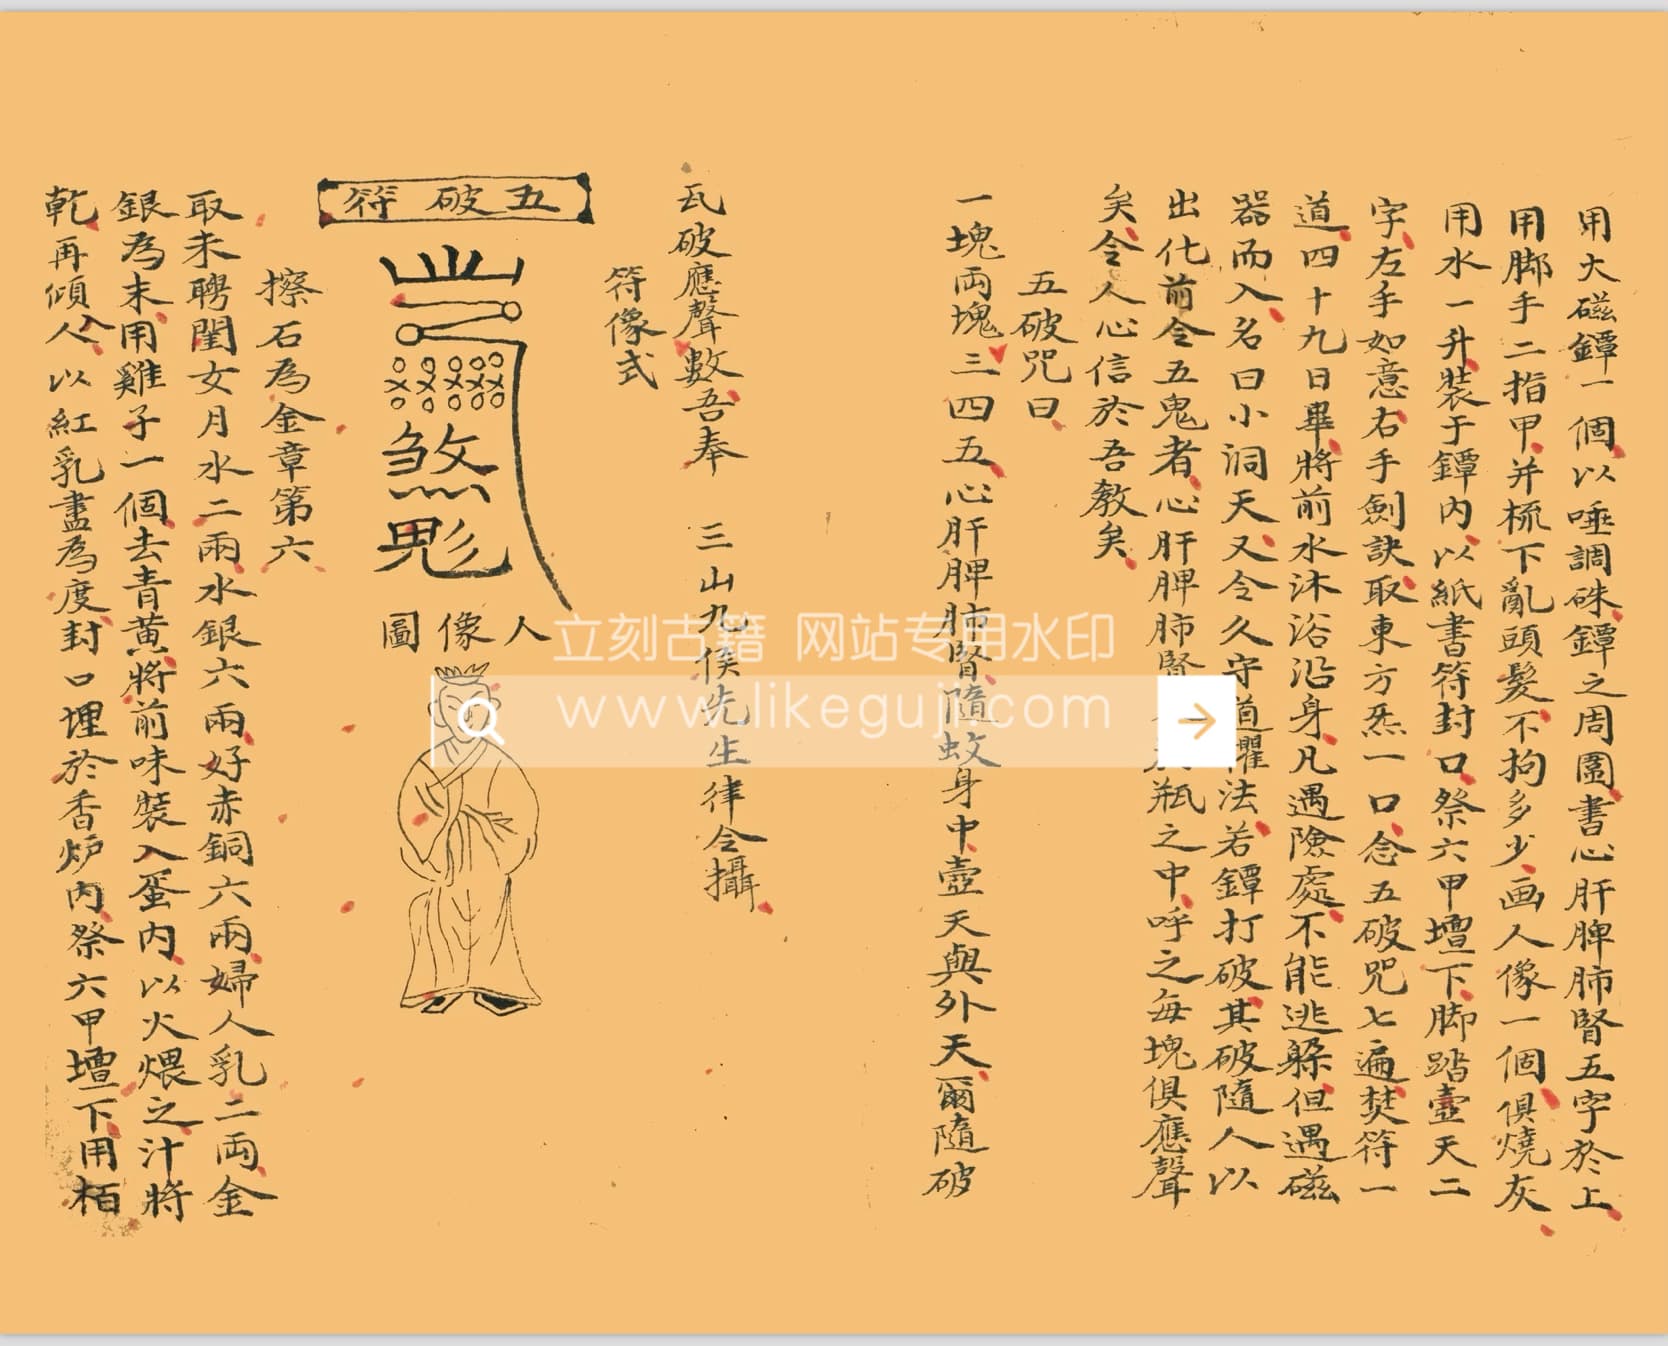 用大磁鐔一個以唾調硃鐔之周圍書心肝脾肺腎五字於上
用脚手二指甲并梳下亂頭髮不拘多少画人像一個俱燒灰
用水一升裝于鐔内以紙書符封口祭六甲壇下脚踏壺天二
字左手如意右手劍訣取東方炁一口念五破咒七遍焚符一
道四十九日畢將前水沐浴沿身凡遇險處不能逃躲但遇磁
器而入名曰小洞天又令久守道懼法若鐔打破其破隨人以
出化前令五鬼者心肝脾肺腎瓶之中呼之每塊俱應聲
矣令人心信於吾教矣
五破咒曰
一塊両塊三四五心肝脾肺腎隨蚊身中壺天與外天爾隨破
瓦破應聲數吾奉 三山九侯先生律令攝
符像式
五破符
煞
人像圖
擦石為金章第六
取未聘閨女月水二兩水銀六兩好赤銅六兩婦人乳二両金
銀為末用雞子一個去青黄將前味裝入蛋内以火煨之汁將
乾再傾人入以紅乳盡為度封口埋於香炉内祭六甲壇下用栢
立刻古籍 网站专用水印
www.likeguji.com